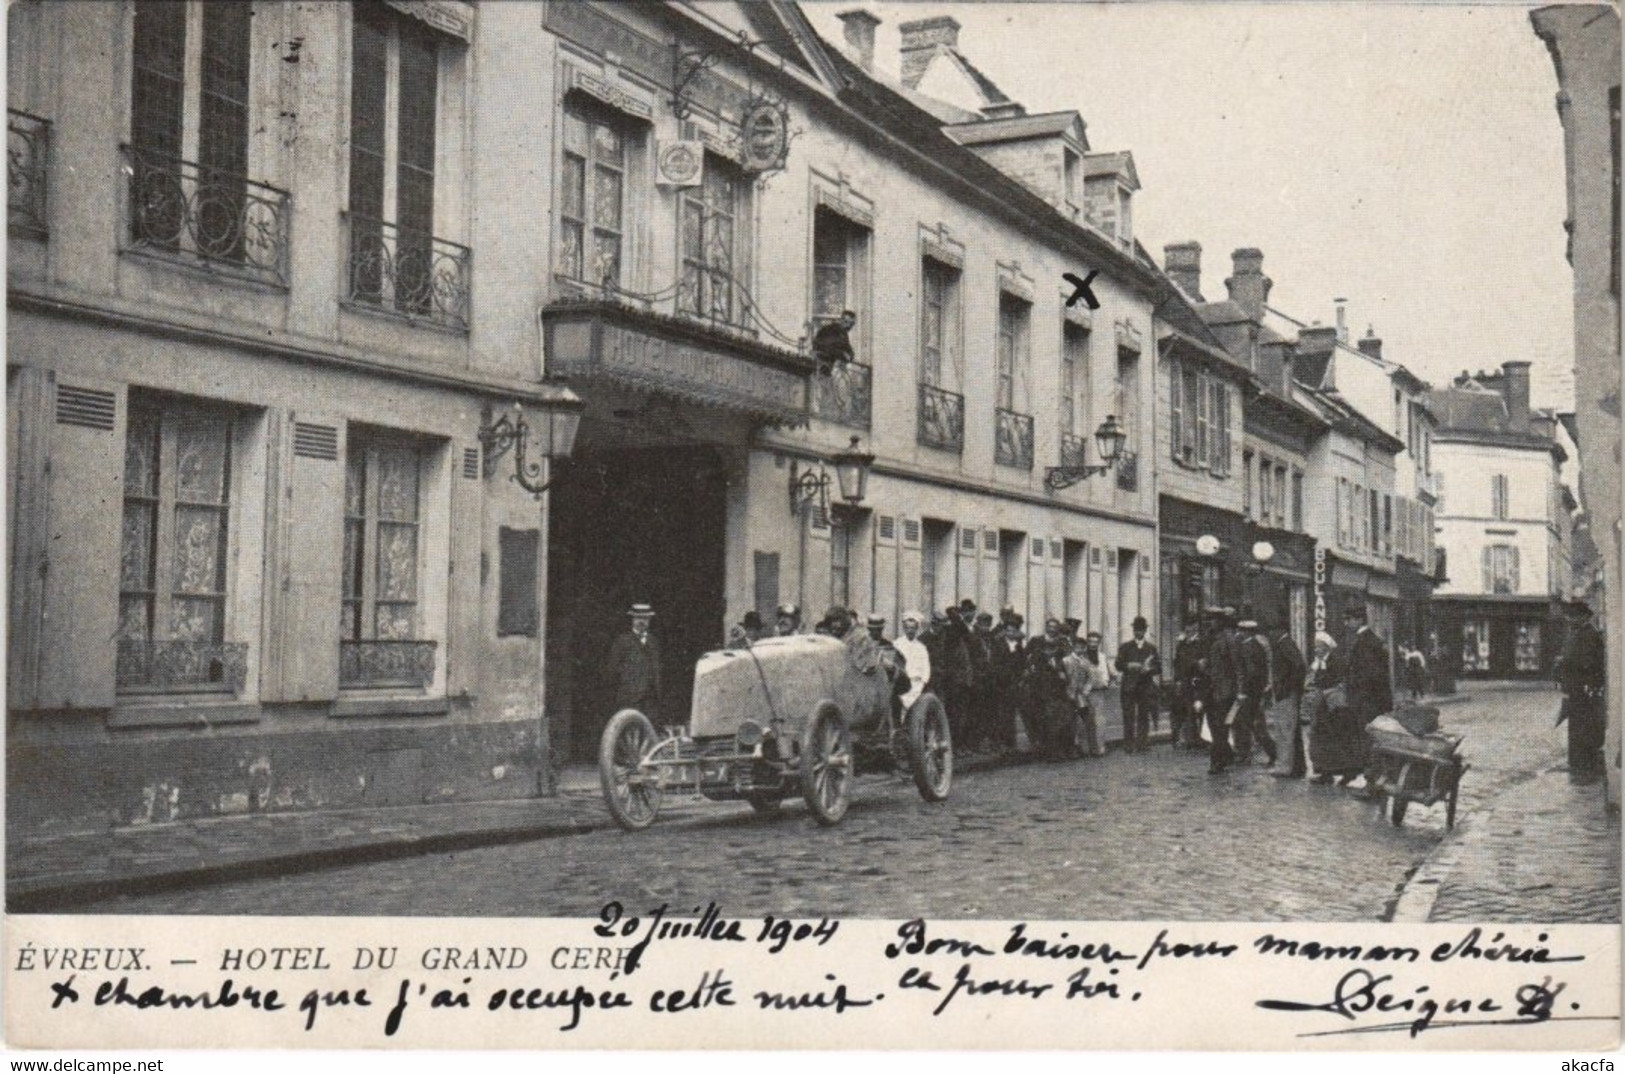 HOTEL DU GRAND CERF
BOULANG
20 Juillet 1904
ÉVREUX. — HOTEL DU GRAND CERF.
x chambre que j'ai occupée cette nuit.
Bon baiser pour maman chérie
et pour toi.
akacfa